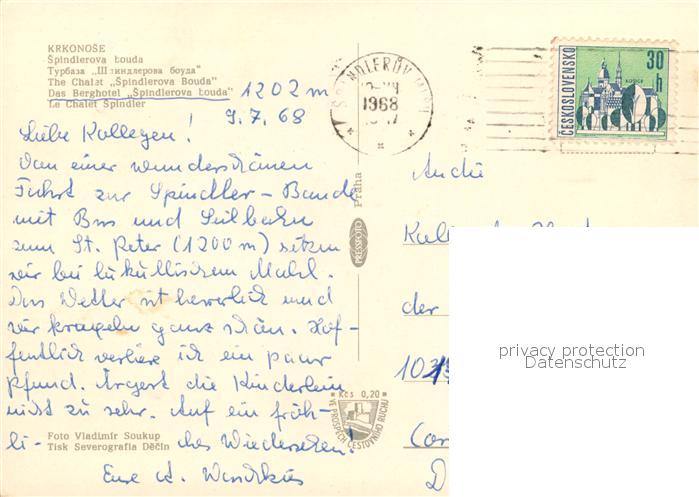 KRKONOŠE
Špindlerova bouda
Турбаза „Шпиндлерова боуда"
The Chalet „Špindlerova Bouda"
Das Berghotel „Špindlerova bouda"
Le Chalet Špindler
1202 m
9.7.68
Liebe Kollegen!
Von einer wunderschönen
Fahrt zur Spindler-Baude
mit Bus und Seilbahn
zum St. Peter (1200 m) sitzen
wir bei lukullischem Mahl.
Das Wetter ist herrlich und
wir kraxeln ganz schön. Hof-
fentlich verliere ich ein paar
Pfund. Ärgert die Kinderlein
nicht zu sehr. Auf ein fröh-
li- ches Wiedersehen!
Eure A.
Foto Vladimír Soukup
Tisk Severografia Děčín
Praha
PRESSFOTO
Kčs 0,20
VE PROSPĚCH CESTOVNÍHO RUCHU
ŠPINDLERŮV
1968
ČESKOSLOVENSKO
30 h
KOŠICE
An die
der
privacy protection
Datenschutz